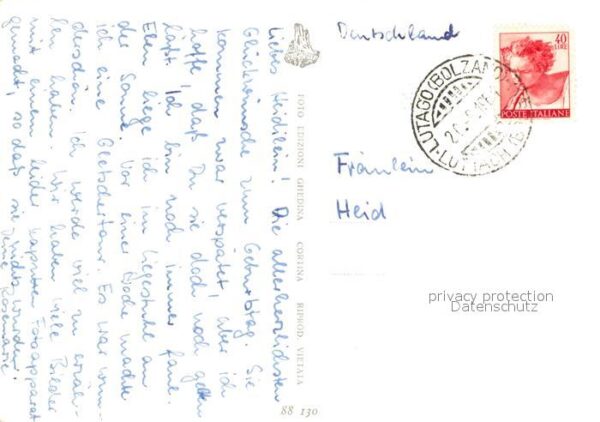 Liebes Heidilein! Die allerherzlichsten
Glückwünsche zum Geburtstag. Sie
kommen zwar verspätet, aber ich
hoffe, daß Du sie doch noch gelten
läßt. Ich bin noch immer faul.
Eben liege ich im Liegestuhl an
der Sonne. Vor einer Woche machte
ich eine Gletschertour. Es war wun-
derschön. Ich werde viel zu erzäh-
len haben. Wir haben viele Bilder
mit einem leider kaputten Fotoapparat
gemacht, so daß sie nichts wurden.
Deine Rosemarie
FOTO EDIZIONI GHEDINA CORTINA RIPROD. VIETATA
88 130
Deutschland
40
LIRE
POSTE ITALIANE
LUTAGO (BOLZANO)
LUTTACH
Fräulein
Heid
privacy protection
Datenschutz